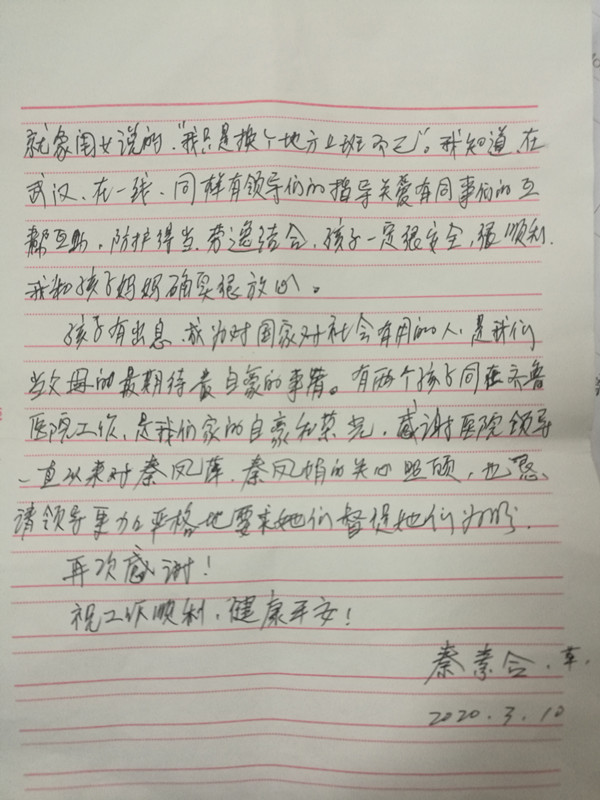 就象闺女说的，“我只是换个地方上班而已”。我知道，在
武汉、在一线、同样有领导们的指导关爱有同事们的互
帮互助，防护得当，劳逸结合，孩子一定很安全，很顺利.
我和孩子妈妈确实很放心。
孩子有出息，成为对国家对社会有用的人，是我们
当父母的最期待最自豪的事情。有两个孩子同在齐鲁
医院工作，是我们家的自豪和荣光，感谢医院领导
一直以来对秦凤萍、秦凤娟的关心照顾，也恳
请领导更加严格地要求她们督促她们
再次感谢！
祝工作顺利，健康平安！
秦素合.草.
2020.3.10